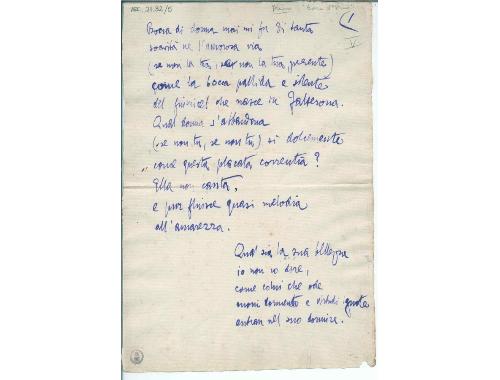 V
Bocca di donna mai mi fu di tanta
soavità ne l'amorosa via
(se non la tua, se non la tua, presente)
come la bocca pallida e silente
del fiumicel che nasce in Falterona.
Qual donna s'abbandona
(se non tu, se non tu) sì dolcemente
come questa placata correntìa?
Ella non canta,
e pur fluisce quasi melodìa
all'amarezza.
Qual sia la sua bellezza
io non so dire,
come colui che ode
suoni dormendo e virtudi ignote
entran nel suo dormire.